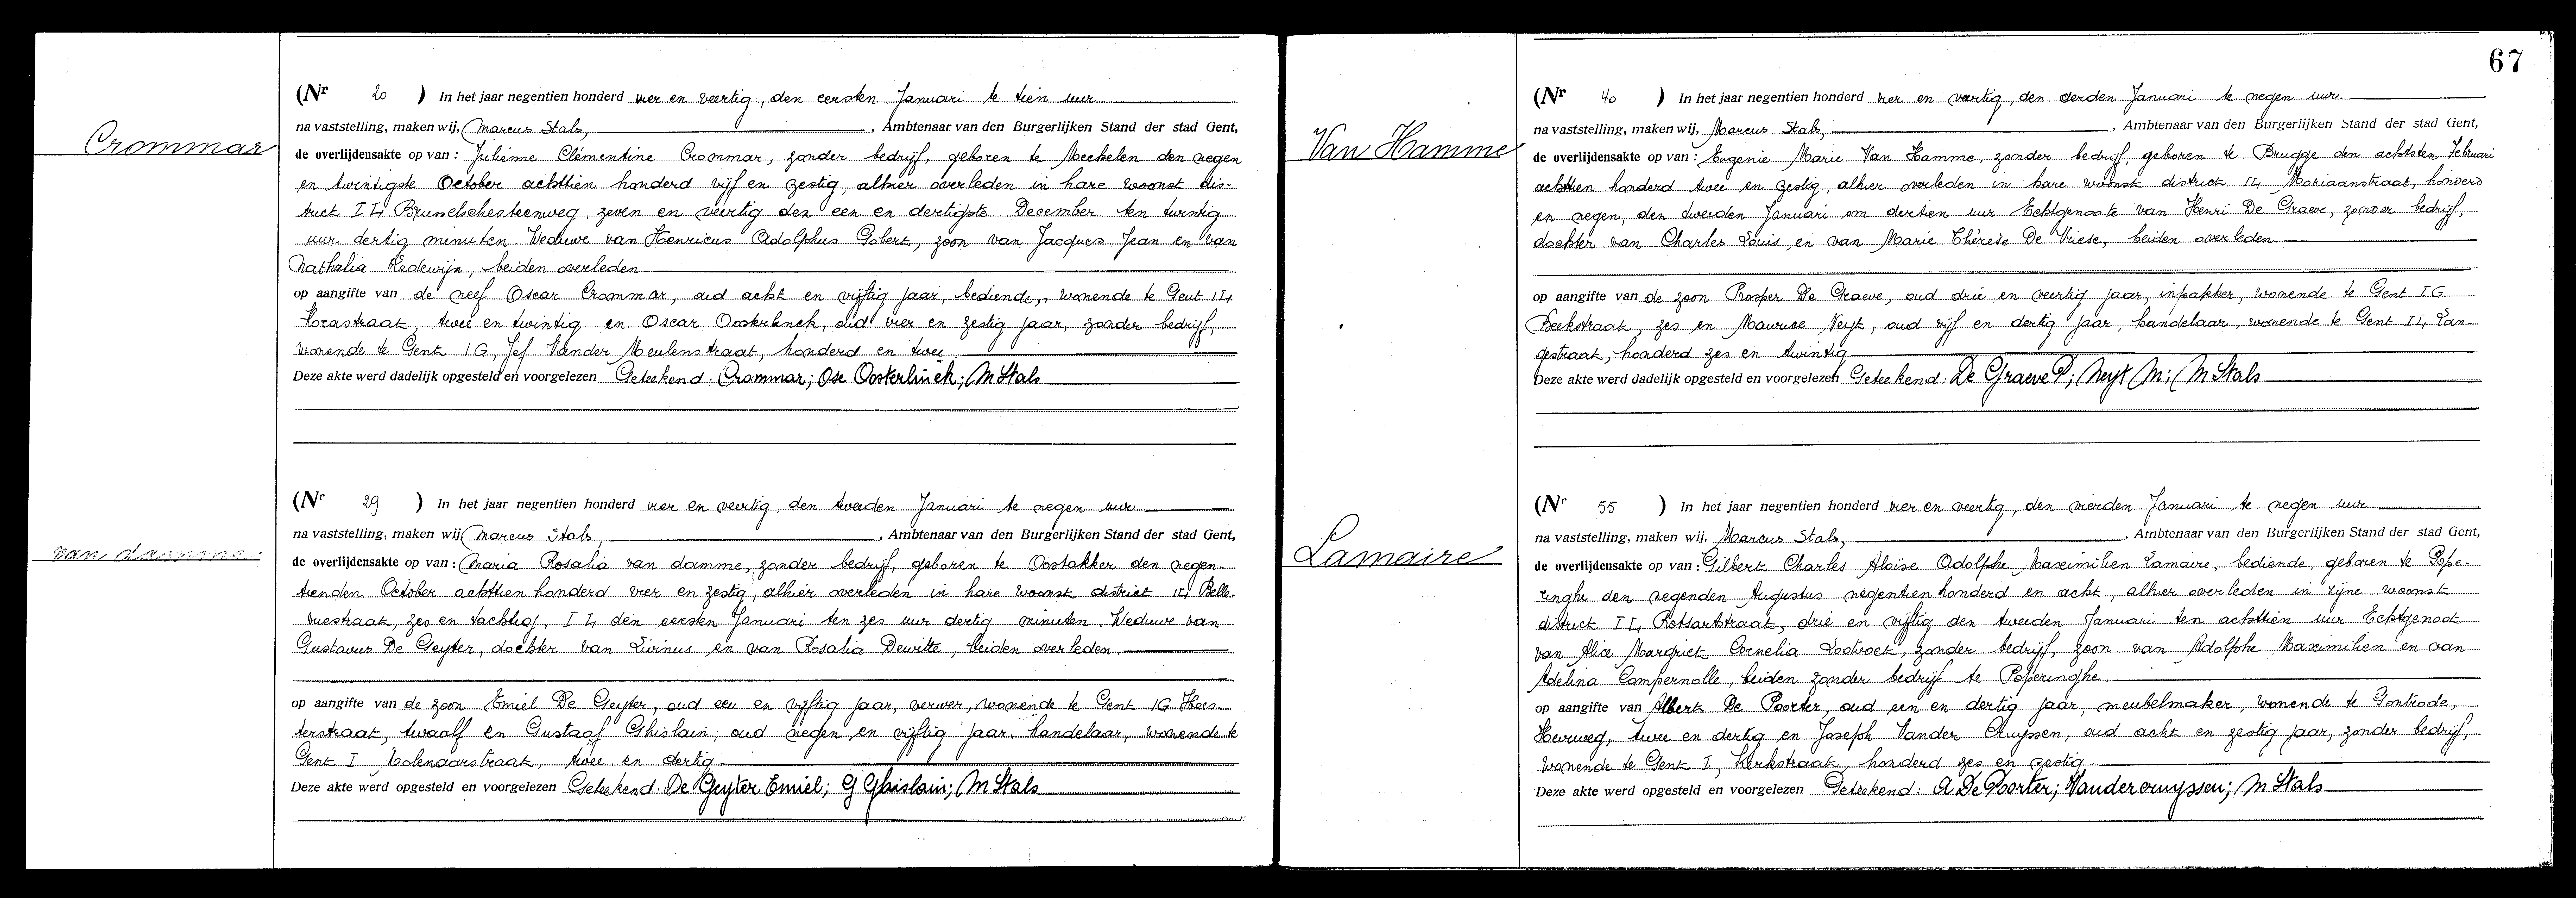 Crommar
(Nr 20 ) In het jaar negentien honderd vier en veertig, den eersten Januari te tien uur
na vaststelling, maken wij, Marcus Stals, , Ambtenaar van den Burgerlijken Stand der stad Gent,
de overlijdensakte op van : Julienne Clémentine Crommar, zonder bedrijf, geboren te Mechelen den negen
en twintigste October achttien honderd vijf en zestig, alhier overleden in hare woonst dis-
trict I L, Brusselschesteenweg, zeven en veertig den een en dertigste December ten twintig
uur dertig minuten Weduwe van Henricus Adolphus Gobert, zoon van Jacques Jean en van
Nathalia Redewijn, beiden overleden
op aangifte van de neef Oscar Crommar, oud acht en vijftig jaar, bediende, wonende te Gent IL,
Florastraat, twee en twintig en Oscar Oosterlinck, oud vier en zestig jaar, zonder bedrijf,
wonende te Gent IG, Jef Vander Meulenstraat, honderd en twee
Deze akte werd dadelijk opgesteld en voorgelezen Geteekend: Crommar; Osc Oosterlinck; M Stals
van damme
(Nr 29 ) In het jaar negentien honderd vier en veertig, den tweeden Januari te negen uur
na vaststelling, maken wij, Marcus Stals, , Ambtenaar van den Burgerlijken Stand der stad Gent,
de overlijdensakte op van : Maria Rosalia van damme, zonder bedrijf, geboren te Oostakker den negen-
tienden October achttien honderd vier en zestig, alhier overleden in hare woonst district IL, Belle-
vuestraat, zes en tachtig, I L, den eersten Januari ten zes uur dertig minuten. Weduwe van
Gustavus De Geyter, dochter van Livinus en van Rosalia Dewitte, beiden overleden
op aangifte van de zoon Emiel De Geyter, oud een en vijftig jaar, verver, wonende te Gent IG Hees-
terstraat, twaalf en Gustaaf Ghislain, oud negen en vijftig jaar, handelaar, wonende te
Gent I Molenaarstraat, twee en dertig
Deze akte werd opgesteld en voorgelezen Geteekend: De Geyter Emiel; G Ghislain; M Stals
67
Van Hamme
(Nr 40 ) In het jaar negentien honderd vier en veertig, den derden Januari te negen uur
na vaststelling, maken wij, Marcus Stals, , Ambtenaar van den Burgerlijken Stand der stad Gent,
de overlijdensakte op van : Eugenie Marie Van Hamme, zonder bedrijf, geboren te Brugge den achtsten Februari
achttien honderd twee en zestig, alhier overleden in hare woonst district IL Moriaanstraat, honderd
en negen, den tweeden Januari om dertien uur Echtgenoote van Henri De Graeve, zonder bedrijf,
dochter van Charles Louis en van Marie Thérèse De Vriese, beiden overleden
op aangifte van de zoon Prosper De Graeve, oud drie en veertig jaar, inpakker, wonende te Gent IG
Beekstraat, zes en Maurice Neyt, oud vijf en dertig jaar, handelaar, wonende te Gent IL, Lan-
gestraat, honderd zes en twintig
Deze akte werd dadelijk opgesteld en voorgelezen Geteekend: De Graeve P; Neyt M; M Stals
Lamaire
(Nr 55 ) In het jaar negentien honderd vier en veertig, den vierden Januari te negen uur
na vaststelling, maken wij, Marcus Stals, , Ambtenaar van den Burgerlijken Stand der stad Gent,
de overlijdensakte op van : Gilbert Charles Aloïse Adolphe Maximilien Lamaire, bediende, geboren te Pope-
ringhe den negenden Augustus negentien honderd en acht, alhier overleden in zijne woonst
district I L, Rotsartstraat, drie en vijftig den tweeden Januari ten achttien uur Echtgenoot
van Alice Margriet Cornelia Lootvoet, zonder bedrijf, zoon van Adolphe Maximilien en van
Adelina Campernolle, beiden zonder bedrijf te Poperinghe
op aangifte van Albert De Poorter, oud een en dertig jaar, meubelmaker, wonende te Gontrode,
Heurweg, twee en dertig en Joseph Vander Cruyssen, oud acht en zestig jaar, zonder bedrijf,
wonende te Gent I, Kerkstraat, honderd zes en zestig
Deze akte werd opgesteld en voorgelezen Geteekend: A. De Poorter; Vandercruyssen; M Stals